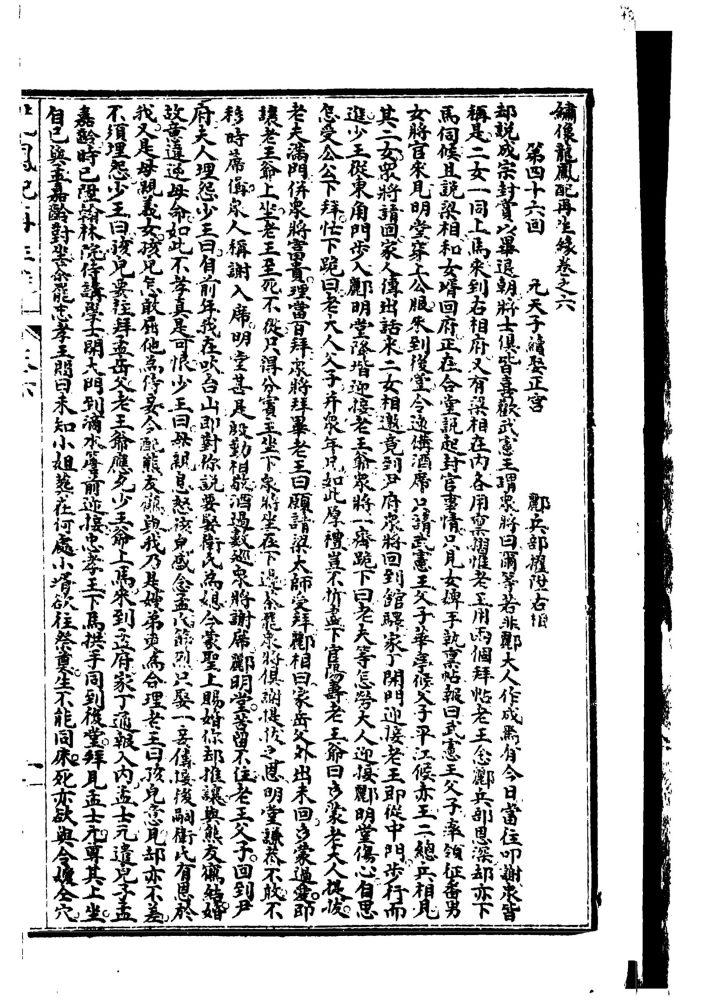 繡像龍鳳配再生緣卷之六
第四十六回 元天子續娶正宮 酈兵部權陞右相
却說成宗封賞以畢退朝將士俱皆喜歡武憲王謂衆將曰爾等若非酈大人作成焉有今日當往叩謝衆皆
稱是二女一同上馬來到右相府又有梁相在內各用稟摺惟老王用兩個拜帖老王念酈兵部恩深却亦下
馬伺候且說梁相和女壻回府正在合堂說起封官事情只見女婢手執稟帖報曰武憲王父子率領征番男
女將官來見明堂穿上公服來到後堂令速備酒席只請武憲王父子華亭候父子平江候亦王二總兵相見
其二女衆將請回家人傳出話來二女相邀竟到尹府衆將回到館驛家丁開門迎接老王即從中門步行而
進少王從東角門步入酈明堂降堦迎接老王爺衆將一齊跪下曰老夫等怎勞大人迎接酈明堂傷心自思
怎受公公下拜忙下跪曰老大人父子并衆年兄如此厚禮豈不折盡下官陽壽老王爺曰多蒙老大人提拔
老夫滿門併衆將富貴理當百拜衆將拜畢老王曰願請梁太師受拜酈相曰家岳父外出未回多蒙過愛即
讓老王爺上坐老王至死不從只得分賓主坐下衆將坐在下邊茶罷衆將俱謝提拔之恩明堂謙恭不敢不
移時席備家人稱謝入席明堂甚是殷勤相敬酒過數廵衆將謝席酈明堂苦留不住老王父子回到尹
府夫人埋怨少王曰自前年我在吹台山即對你說要娶衛氏為媳今蒙聖上賜婚你却推讓與熊友鶴結婚
故意違逆母命如此不孝真是可恨少王曰母親息怒孩兒感念孟氏節烈只娶一妾儔接後嗣衛氏有恩於
我又是母親義女孩兒怎敢屈他為侍妾今配熊友鶴勒我乃是姊弟更為合理老王曰孩兒意見却亦不差
不須埋怨少王曰孩兒要往拜孟岳父老王爺應允少王爺上馬來到孟府家丁通報入內孟士元遣兒子孟
嘉齡時已陞翰林院侍講學士開大門到滴水簷前迎接忠孝王下馬拱手同到後堂拜見孟士元尊其上坐
自己與孟嘉齡對坐茶罷忠孝王問曰未知小姐墓在何處小壻欲往祭奠生不能同床死亦欲與令嬡仝穴